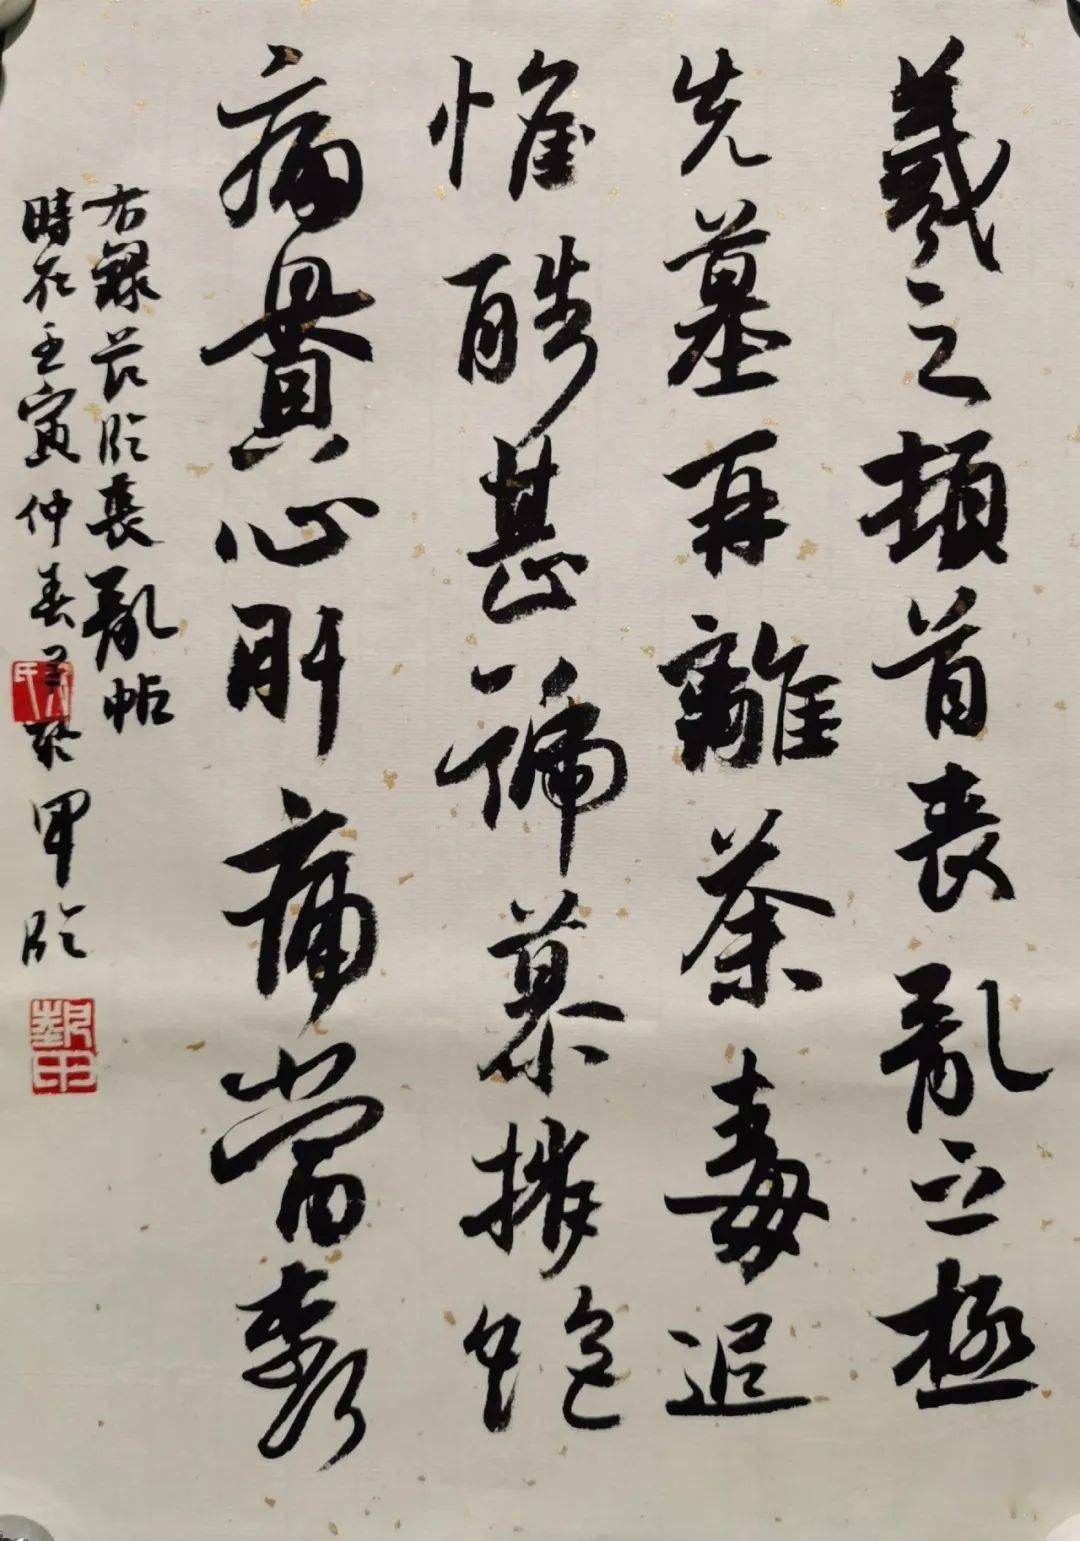 羲之頓首喪亂之極
先墓再離荼毒追
惟酷甚號慕摧絶
痛貫心肝痛當奈何
右錄节臨喪亂帖
時在壬寅仲春於甲臨